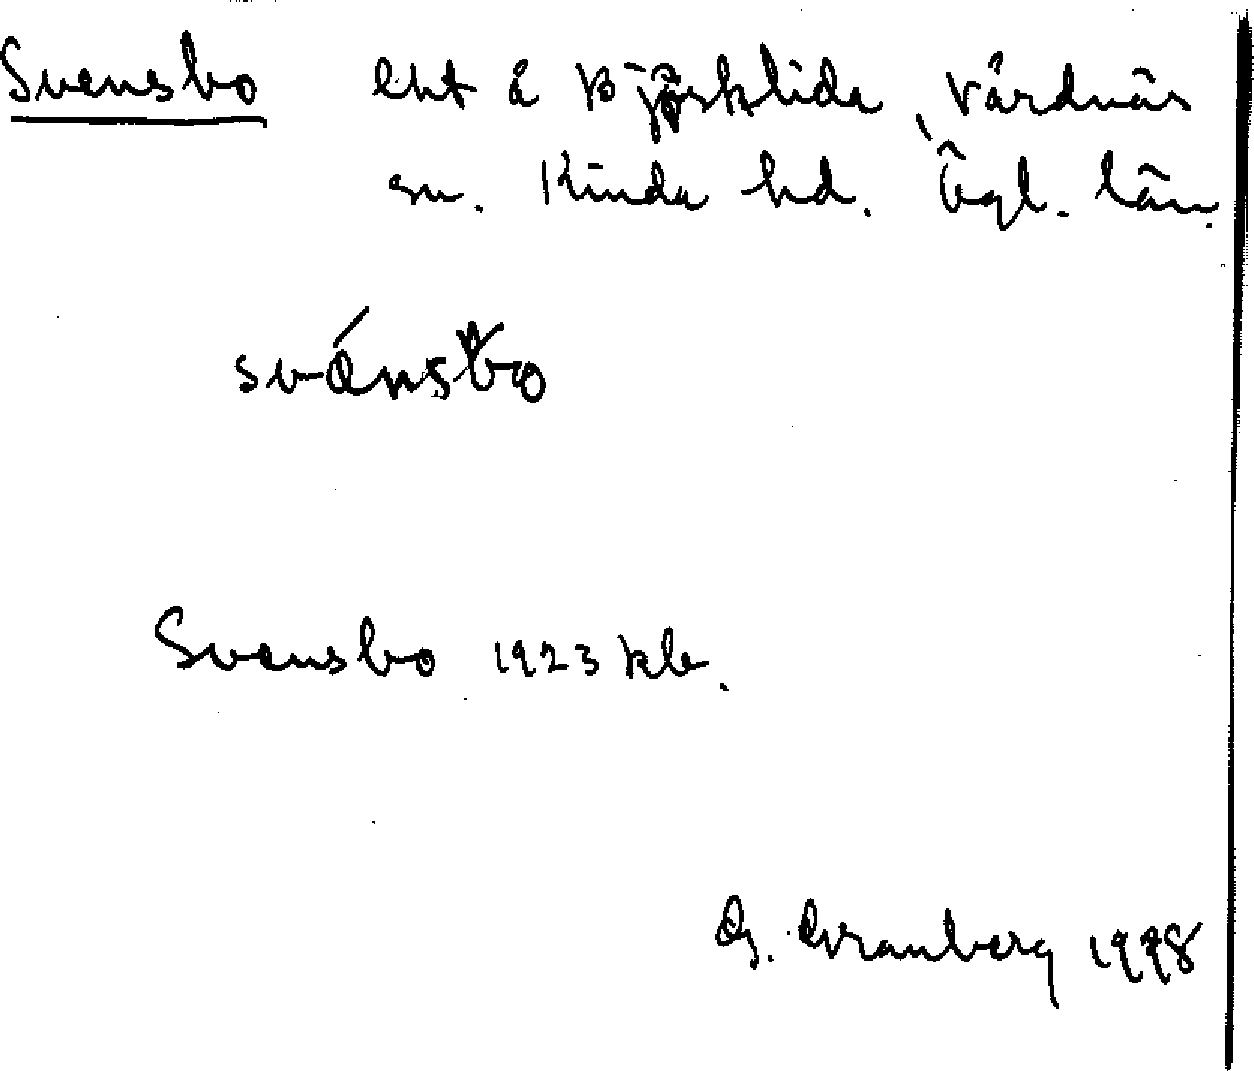 Svensbo lht å Björklida, Vårdnäs
sn. Kinda hd. Ögl. län.
svánsbo
Svensbo 1923 kb.
G. Granberg 1928